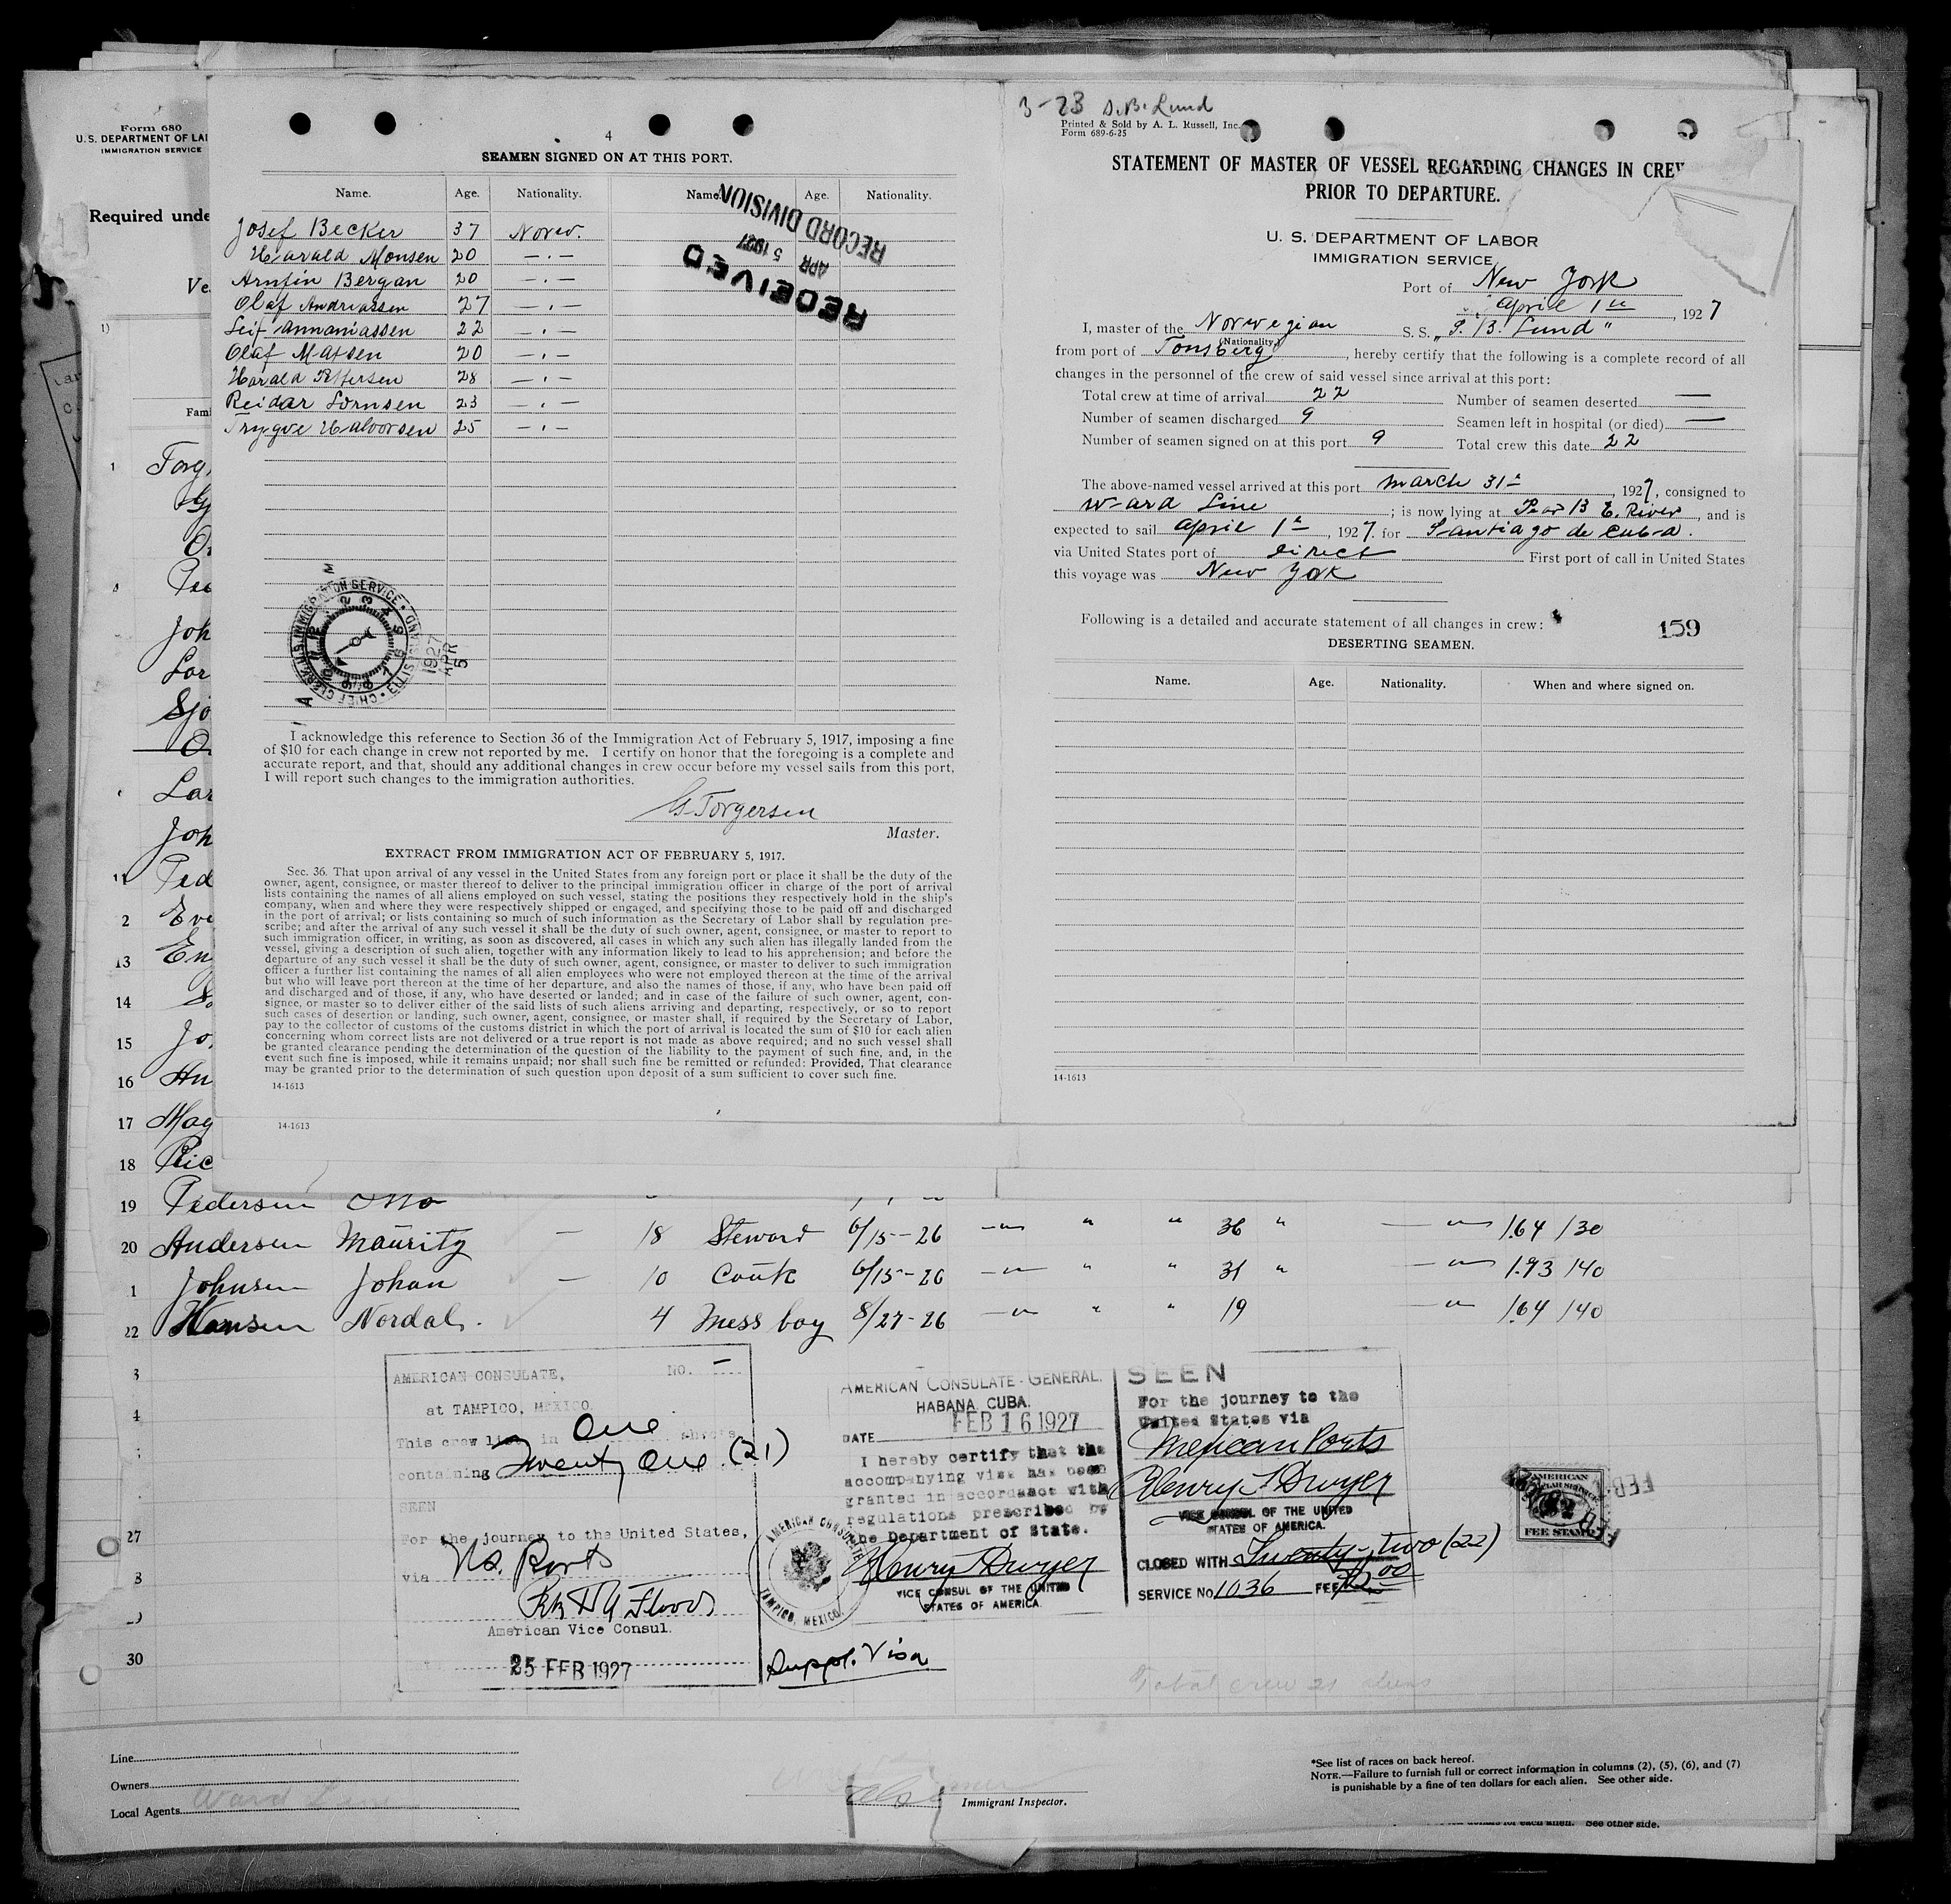 Form 680
U. S. DEPARTMENT OF LA
IMMIGRATION SERVICE
Required unde
Ve
1)
Fami
1 Torg
On
Joh
Lar
Sjo
Lar
Joh
11 Ped
2 Eve
13 En
14
15 Jo
16
17 Mag
18 Ric
4
SEAMEN SIGNED ON AT THIS PORT.
Name. Age. Nationality. Name. Age. Nationality.
Josef Becker 37 Norw.
Harald Monsen 20 — . —
Arnfin Bergan 20 — . —
Olaf Andreassen 27 — . —
Leif Annaniassen 22 — . —
Olaf Matsen 20 — . —
Harald Pettersen 28 — . —
Reidar Lornsen 23 — . —
Trygve Halvorsen 25 — . —
RECEIVED
APR 5 1927
RECORD DIVISION
CHIEF CLERK U.S. IMMIGRATION SERVICE • ELLIS ISLAND •
1927
APR
5
I acknowledge this reference to Section 36 of the Immigration Act of February 5, 1917, imposing a fine
of $10 for each change in crew not reported by me. I certify on honor that the foregoing is a complete and
accurate report, and that, should any additional changes in crew occur before my vessel sails from this port,
I will report such changes to the immigration authorities.
G. Torgersen
Master.
EXTRACT FROM IMMIGRATION ACT OF FEBRUARY 5, 1917.
Sec. 36. That upon arrival of any vessel in the United States from any foreign port or place it shall be the duty of the
owner, agent, consignee, or master thereof to deliver to the principal immigration officer in charge of the port of arrival
lists containing the names of all aliens employed on such vessel, stating the positions they respectively hold in the ship's
company, when and where they were respectively shipped or engaged, and specifying those to be paid off and discharged
in the port of arrival; or lists containing so much of such information as the Secretary of Labor shall by regulation pre-
scribe; and after the arrival of any such vessel it shall be the duty of such owner, agent, consignee, or master to report to
such immigration officer, in writing, as soon as discovered, all cases in which any such alien has illegally landed from the
vessel, giving a description of such alien, together with any information likely to lead to his apprehension; and before the
departure of any such vessel it shall be the duty of such owner, agent, consignee, or master to deliver to such immigration
officer a further list containing the names of all alien employees who were not employed thereon at the time of the arrival
but who will leave port thereon at the time of her departure, and also the names of those, if any, who have been paid off
and discharged and of those, if any, who have deserted or landed; and in case of the failure of such owner, agent, con-
signee, or master so to deliver either of the said lists of such aliens arriving and departing, respectively, or so to report
such cases of desertion or landing, such owner, agent, consignee, or master shall, if required by the Secretary of Labor,
pay to the collector of customs of the customs district in which the port of arrival is located the sum of $10 for each alien
concerning whom correct lists are not delivered or a true report is not made as above required; and no such vessel shall
be granted clearance pending the determination of the question of the liability to the payment of such fine, and, in the
event such fine is imposed, while it remains unpaid; nor shall such fine be remitted or refunded: Provided, That clearance
may be granted prior to the determination of such question upon deposit of a sum sufficient to cover such fine.
14-1613
14-1613
3-23 S. B. Lund
Printed & Sold by A. L. Russell, Inc.
Form 689-6-25
STATEMENT OF MASTER OF VESSEL REGARDING CHANGES IN CREW
PRIOR TO DEPARTURE.
U. S. DEPARTMENT OF LABOR
IMMIGRATION SERVICE
Port of New York
April 1st, 1927
I, master of the Norwegian S. S. "S. B. Lund"
(Nationality)
from port of Tonsberg, hereby certify that the following is a complete record of all
changes in the personnel of the crew of said vessel since arrival at this port:
Total crew at time of arrival 22 Number of seamen deserted —
Number of seamen discharged 9 Seamen left in hospital (or died) —
Number of seamen signed on at this port 9 Total crew this date 22
The above-named vessel arrived at this port March 31st, 1927, consigned to
Ward Line; is now lying at Pier 13 E. River, and is
expected to sail April 1st, 1927. for Santiago de Cuba.
via United States port of direct First port of call in United States
this voyage was New York
Following is a detailed and accurate statement of all changes in crew:
159
DESERTING SEAMEN.
Name. Age. Nationality. When and where signed on.
14-1613
19 Pedersen Otto
20 Andersen Mauritz — 18 Steward 6/15-26 —"— " " 36 " —"— 1.64 /30
1 Johnsen Johan — 10 Cook 6/15-26 —"— " " 31 " —"— 1.93 /40
22 Hansen Nordal. 4 Mess boy 8/27-26 —"— " " 19 —"— 1.64 /40
3
4
27
8
30
AMERICAN CONSULATE, NO. —
at TAMPICO, MEXICO.
This crew list, in One sheets
containing Twenty One (21)
SEEN
For the journey to the United States,
via U.S. Ports
American Vice Consul.
25 FEB 1927
AMERICAN CONSULATE
TAMPICO, MEXICO.
AMERICAN CONSULATE-GENERAL.
HABANA, CUBA.
DATE FEB 16 1927
I hereby certify that the
accompanying visa has been
granted in accordance with
regulations prescribed by
the Department of State.
Henry Dwyer
VICE CONSUL OF THE UNITED
STATES OF AMERICA.
Suppl. Visa
SEEN
For the journey to the
United States via
Mexican Ports
Henry T Dwyer
VICE CONSUL OF THE UNITED
STATES OF AMERICA.
CLOSED WITH Twenty-two (22)
SERVICE No 1036 FEE $2.00
AMERICAN
FEE STAMP
FEB
Total crew 21 aliens
Line
Owners
Local Agents Ward Line
Immigrant Inspector.
*See list of races on back hereof.
NOTE.—Failure to furnish full or correct information in columns (2), (5), (6), and (7)
is punishable by a fine of ten dollars for each alien. See other side.
See other side.